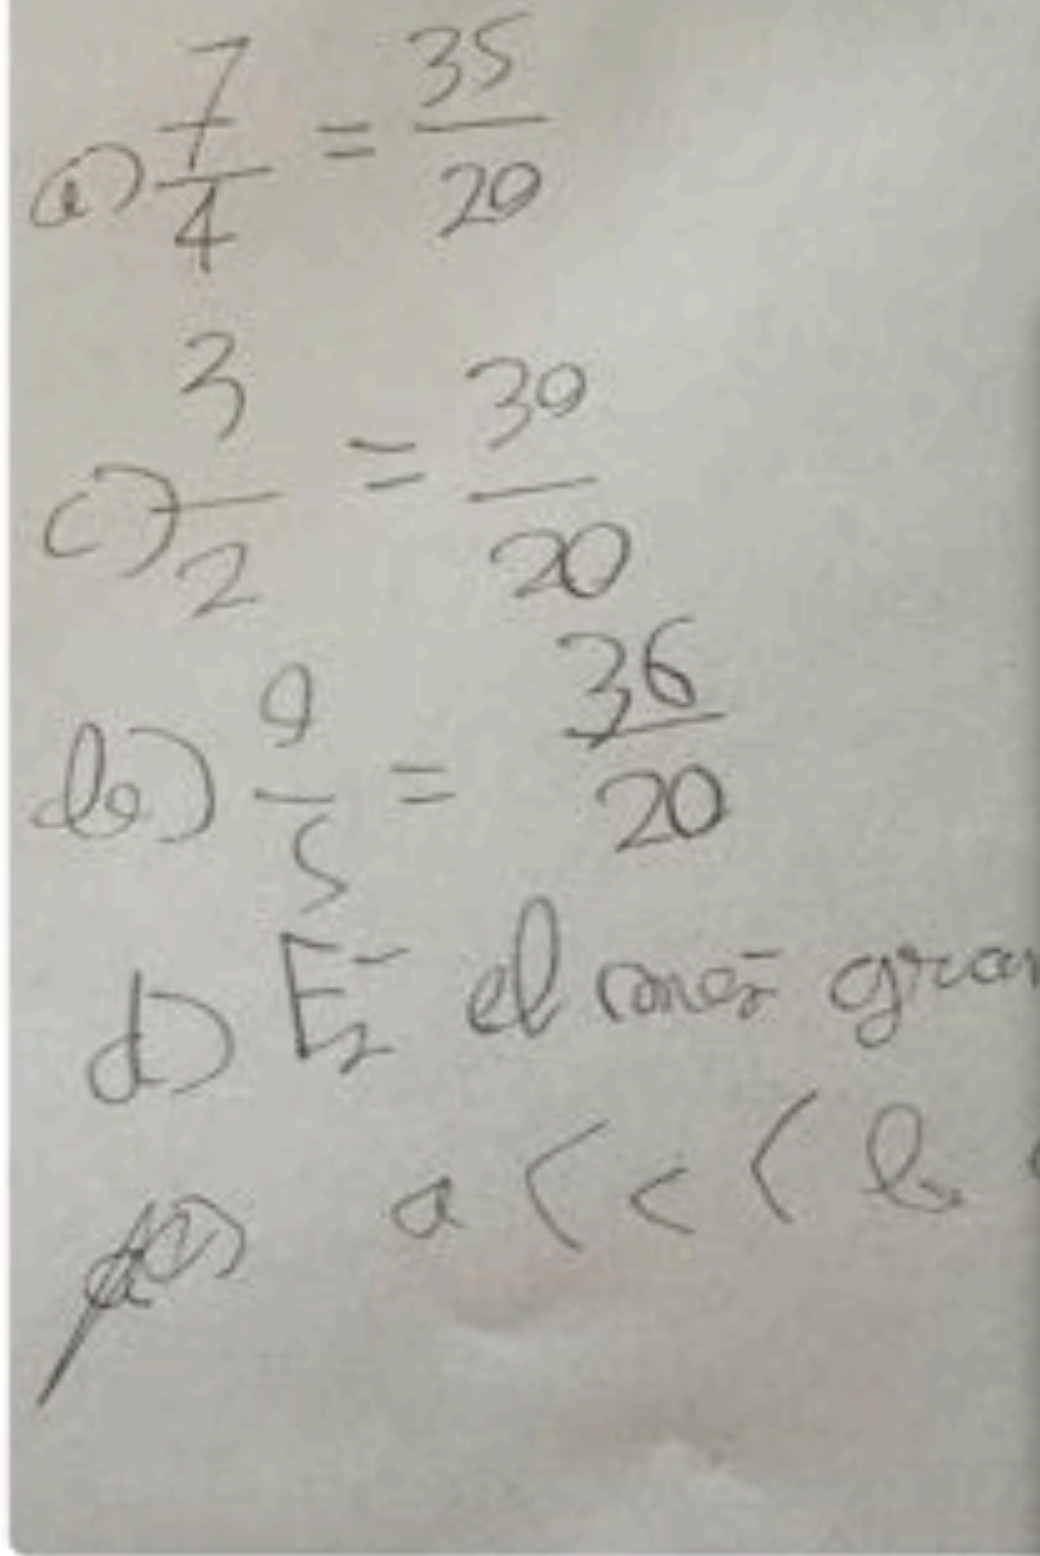 a) 7/4 = 35/20
c) 3/2 = 30/20
b) 9/5 = 36/20
d) Es el mas
a < c < b